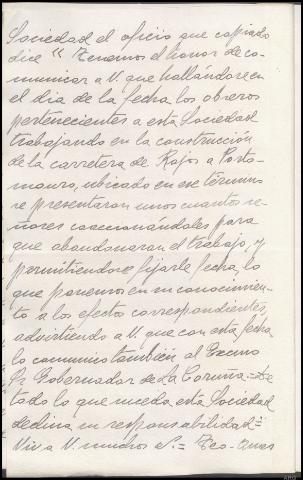 Sociedad el oficio que copiado
dice "Tenemos el honor de co-
municar a V. que hallándose en
el dia de la fecha los obreros
pertenecientes a esta Sociedad
trabajando en la construcción
de la carretera de Rajos a Porto-
mouro, ubicado en ese término
se presentaron unos cuantos se-
ñores coaccionándoles para
que abandonaran el trabajo, y
permitiendose fijarle fecha, lo
que ponemos en su conocimien-
to a los efectos correspondientes,
advirtiendo a V. que con esta fecha
lo comunico también al Excmo
Sr. Gobernador de La Coruña = De
todo lo que suceda esta Sociedad
declina su responsabilidad =
Viva V. muchos a.s = Teo-